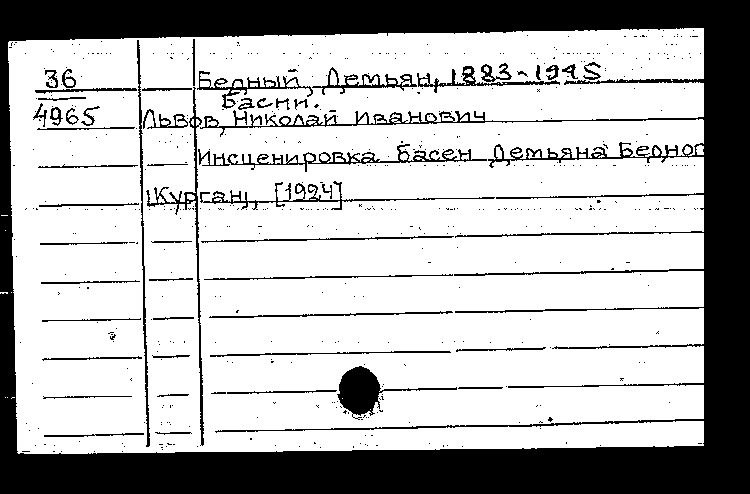 36 Бедный, Демьян, 1883-1945
Басни.
4965 Львов, Николай Иванович
Инсценировка басен Демьяна Бедног
[Курган], [1924]